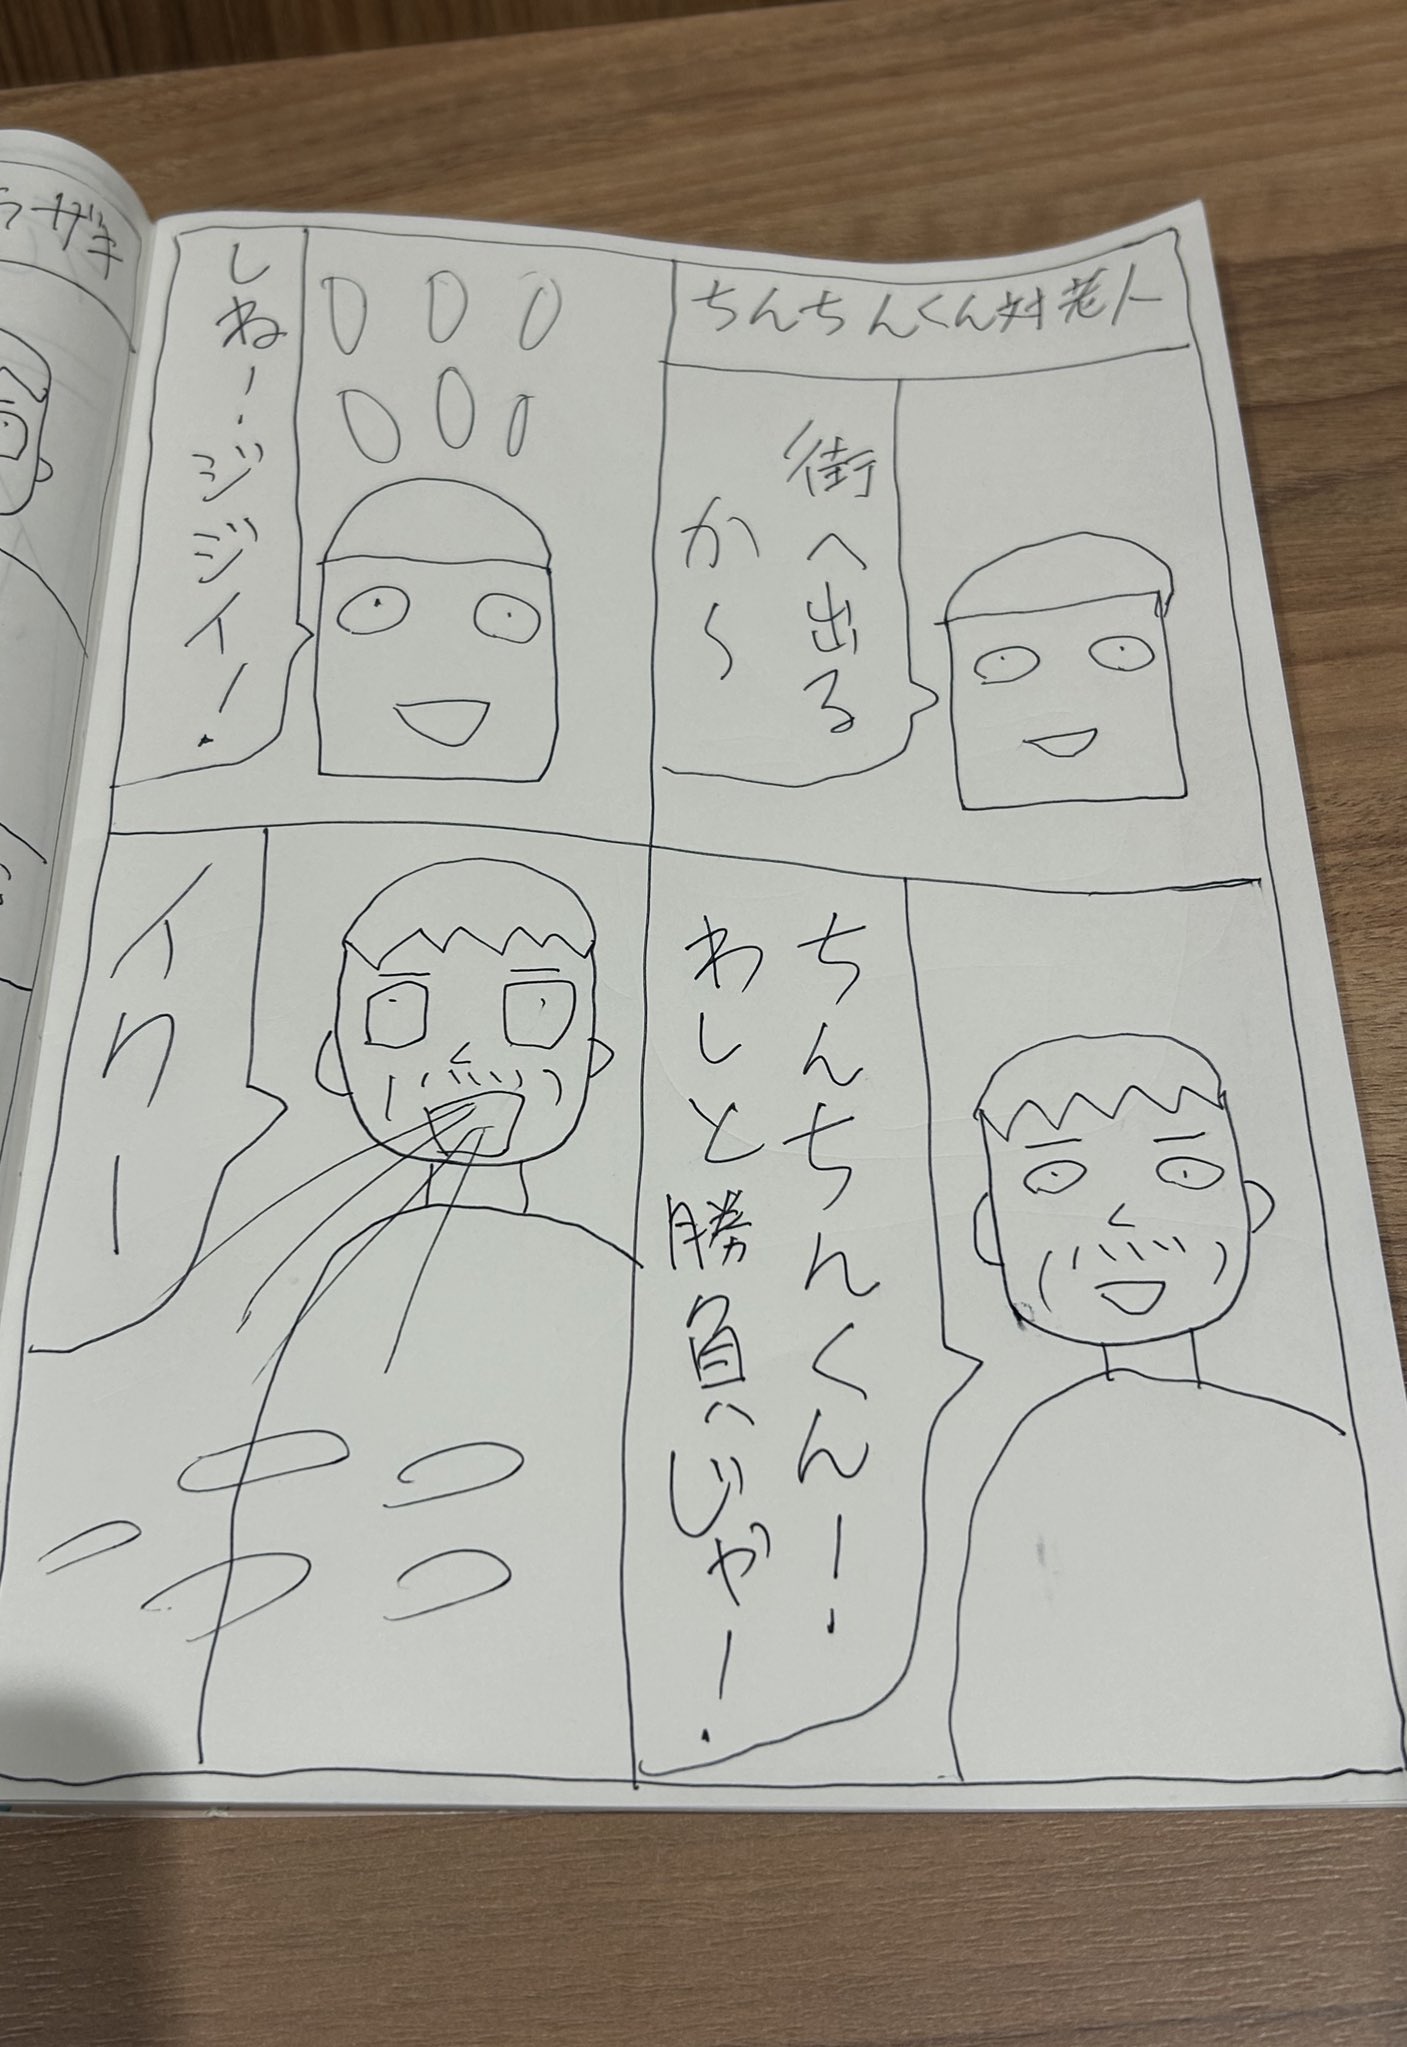 ちんちんくん対老人
街へ出る
から
ちんちんくんー!
わしと勝負じゃー!
しねー!
ジジイー!
イクー
ラザキ